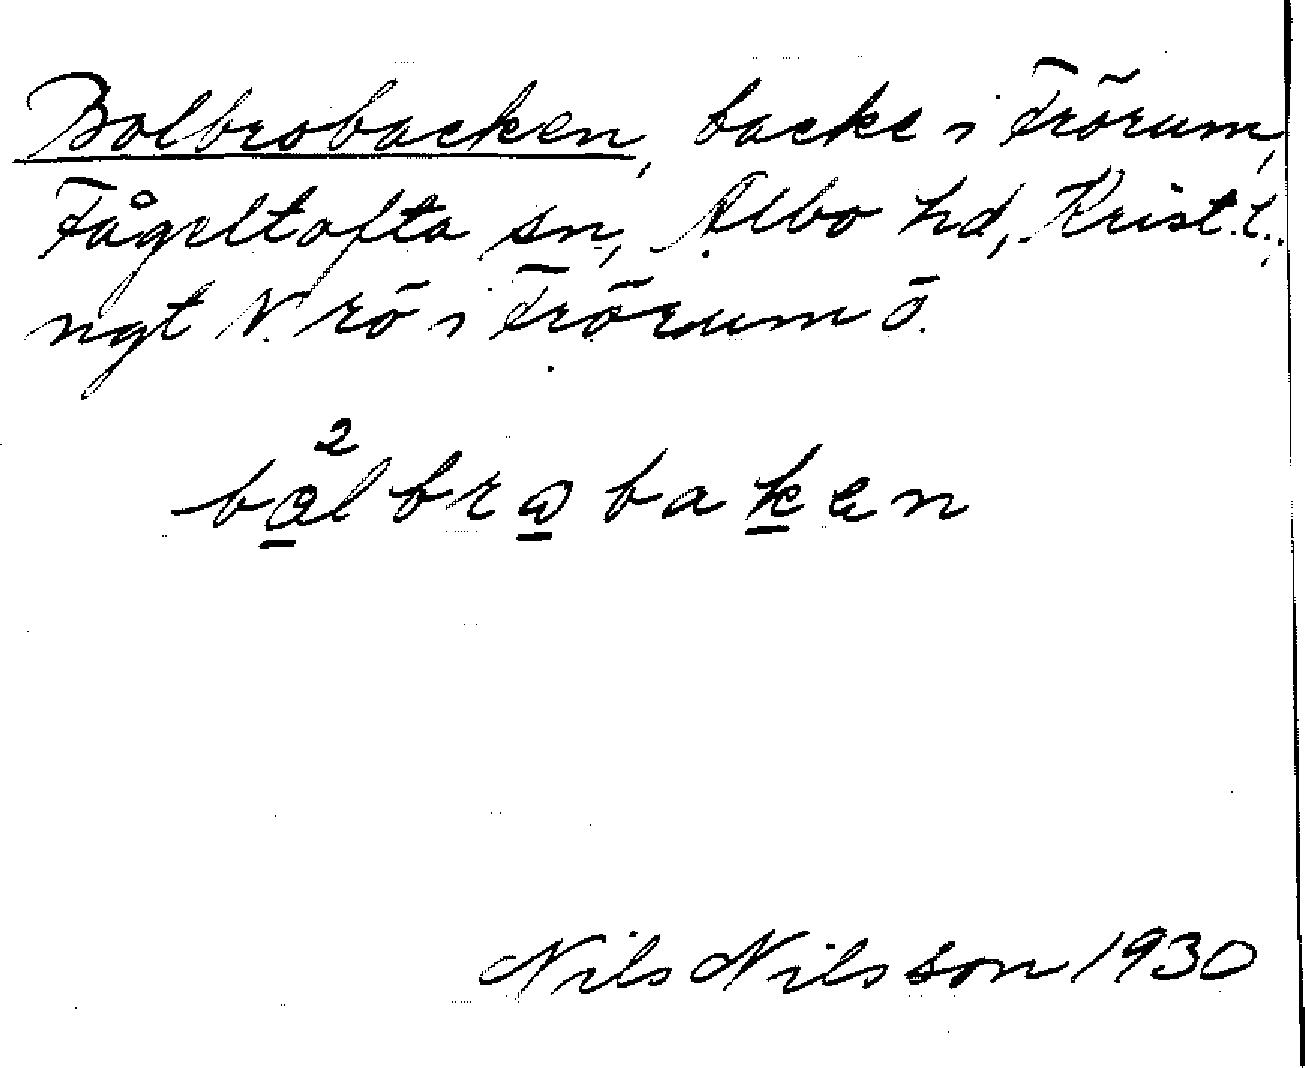 Bolbrobacken, backe i Frörum,
Fågeltofta sn, Albo hd, Krist. l.,
ngt N. rö i Frörum ö.
2
bålbrobaken
Nils Nilsson 1930